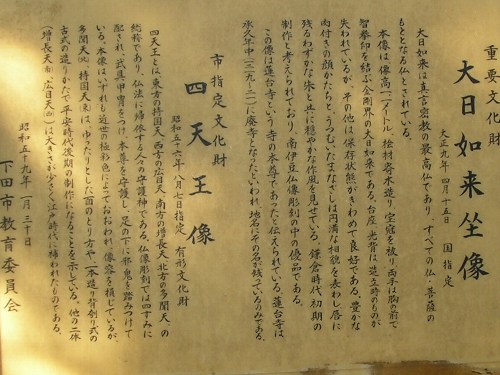 重要文化財
大日如来坐像
大正九年四月十五日　国指定
大日如来は真言密教の最高仏であり、すべての仏・菩薩の
もととなる仏とされている。
本像は像高一メートル、桧材寄木造り、宝冠を被り両手は胸の前で
智拳印を結ぶ金剛界の大日如来である。台座、光背は造立時のものが
失われているが、その他は保存状態がきわめて良好である。豊かな
肉付きの顔かたちと、うつむいたまなざしは円満な相貌を表わし、唇に
残るわずかな朱と共に穏やかな作風を見せている。鎌倉時代初期の
制作と考えられており、南伊豆仏像彫刻の中の優品である。
この像は蓮台寺という寺の本尊であったと伝えられている。蓮台寺は
永久年中に廃寺となったといわれ、地名にその名が残っているのみである。
市指定文化財
四天王像
昭和五十六年八月七日指定　有形文化財
四天王とは、東方の持国天、西方の広目天、南方の増長天、北方の多聞天、の
総称であり、仏法に帰依する人々の守護神である。仏像彫刻では四すみに
配され、武具甲冑をつけ、本尊を守護し、足の下に邪鬼を踏みつけて
いる。本像はいずれも近世の極彩色によっておおわれ、像容を損しているが、
多聞天、持国天は、ゆったりとした面のとり方や、一木造り、背刳り式の
古式の造りかたで平安時代後期の制作になることを示している。他の二体
（増長天、広目天）は大きさが少し小さく江戸時代に補われたものである。
昭和五十九年一月三十日
下田市教育委員会